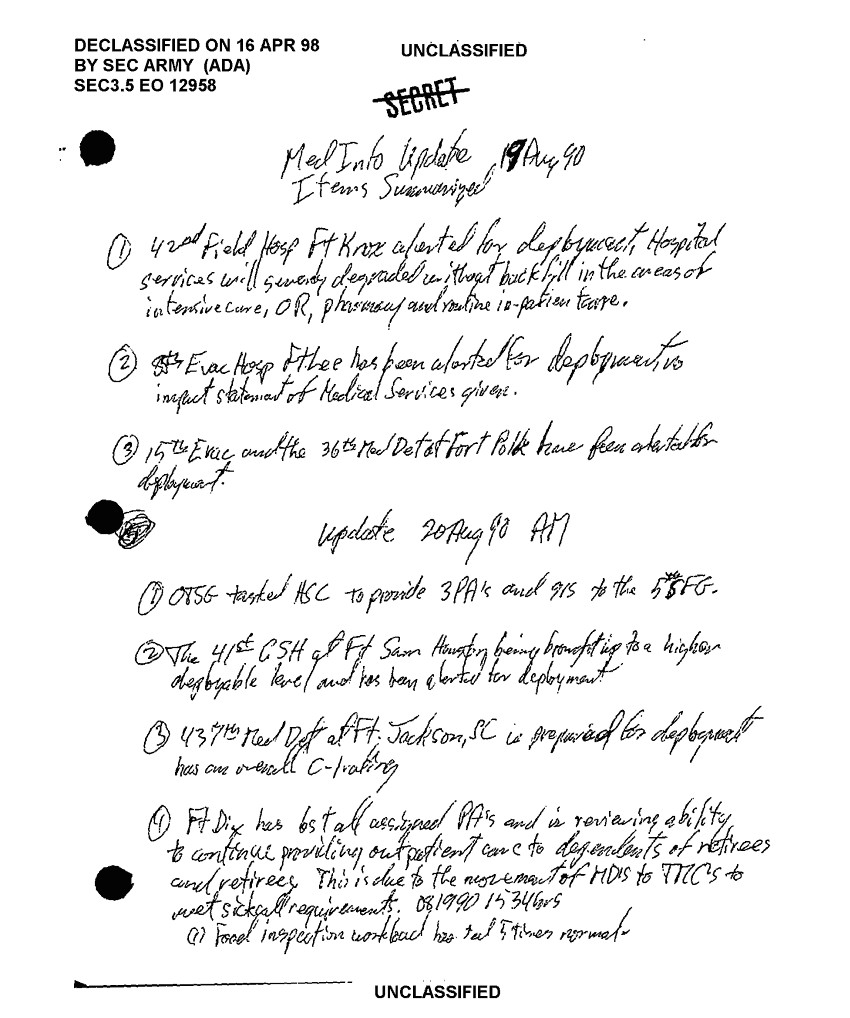 DECLASSIFIED ON 16 APR 98
BY SEC ARMY (ADA)
SEC3.5 EO 12958
UNCLASSIFIED
SECRET
Med Info Update, 19 Aug 90
Items Summarized
① 42nd Field Hosp Ft Knox alerted for deployment, Hospital
services will degraded without backfill in the areas of
intensive care, OR, pharmacy and routine in-patient care.
② Evac Hosp has been alerted for deployment, no
impact statement of Medical Services given.
③ 15th Evac and the 36th Med Det at Fort Polk have been alerted for
deployment.
Update 20 Aug 90 AM
① OTSG tasked HSC to provide 3 PA's and to the 5th SFG.
② The 41st CSH at Ft Sam Houston being brought up to a higher
deployable level and has been alerted for deployment
③ 437th Med Det at Ft. Jackson, SC is prepared for deployment
has an overall C-1 rating
④ Ft Dix has lost all assigned PA's and is reviewing ability
to continue providing outpatient care to dependents of retirees
and retirees. This is due to the movement of MD's to TMC's to
meet sickcall requirements. 081990 1534hrs
(1) Food inspection workload has 5 times normal
UNCLASSIFIED